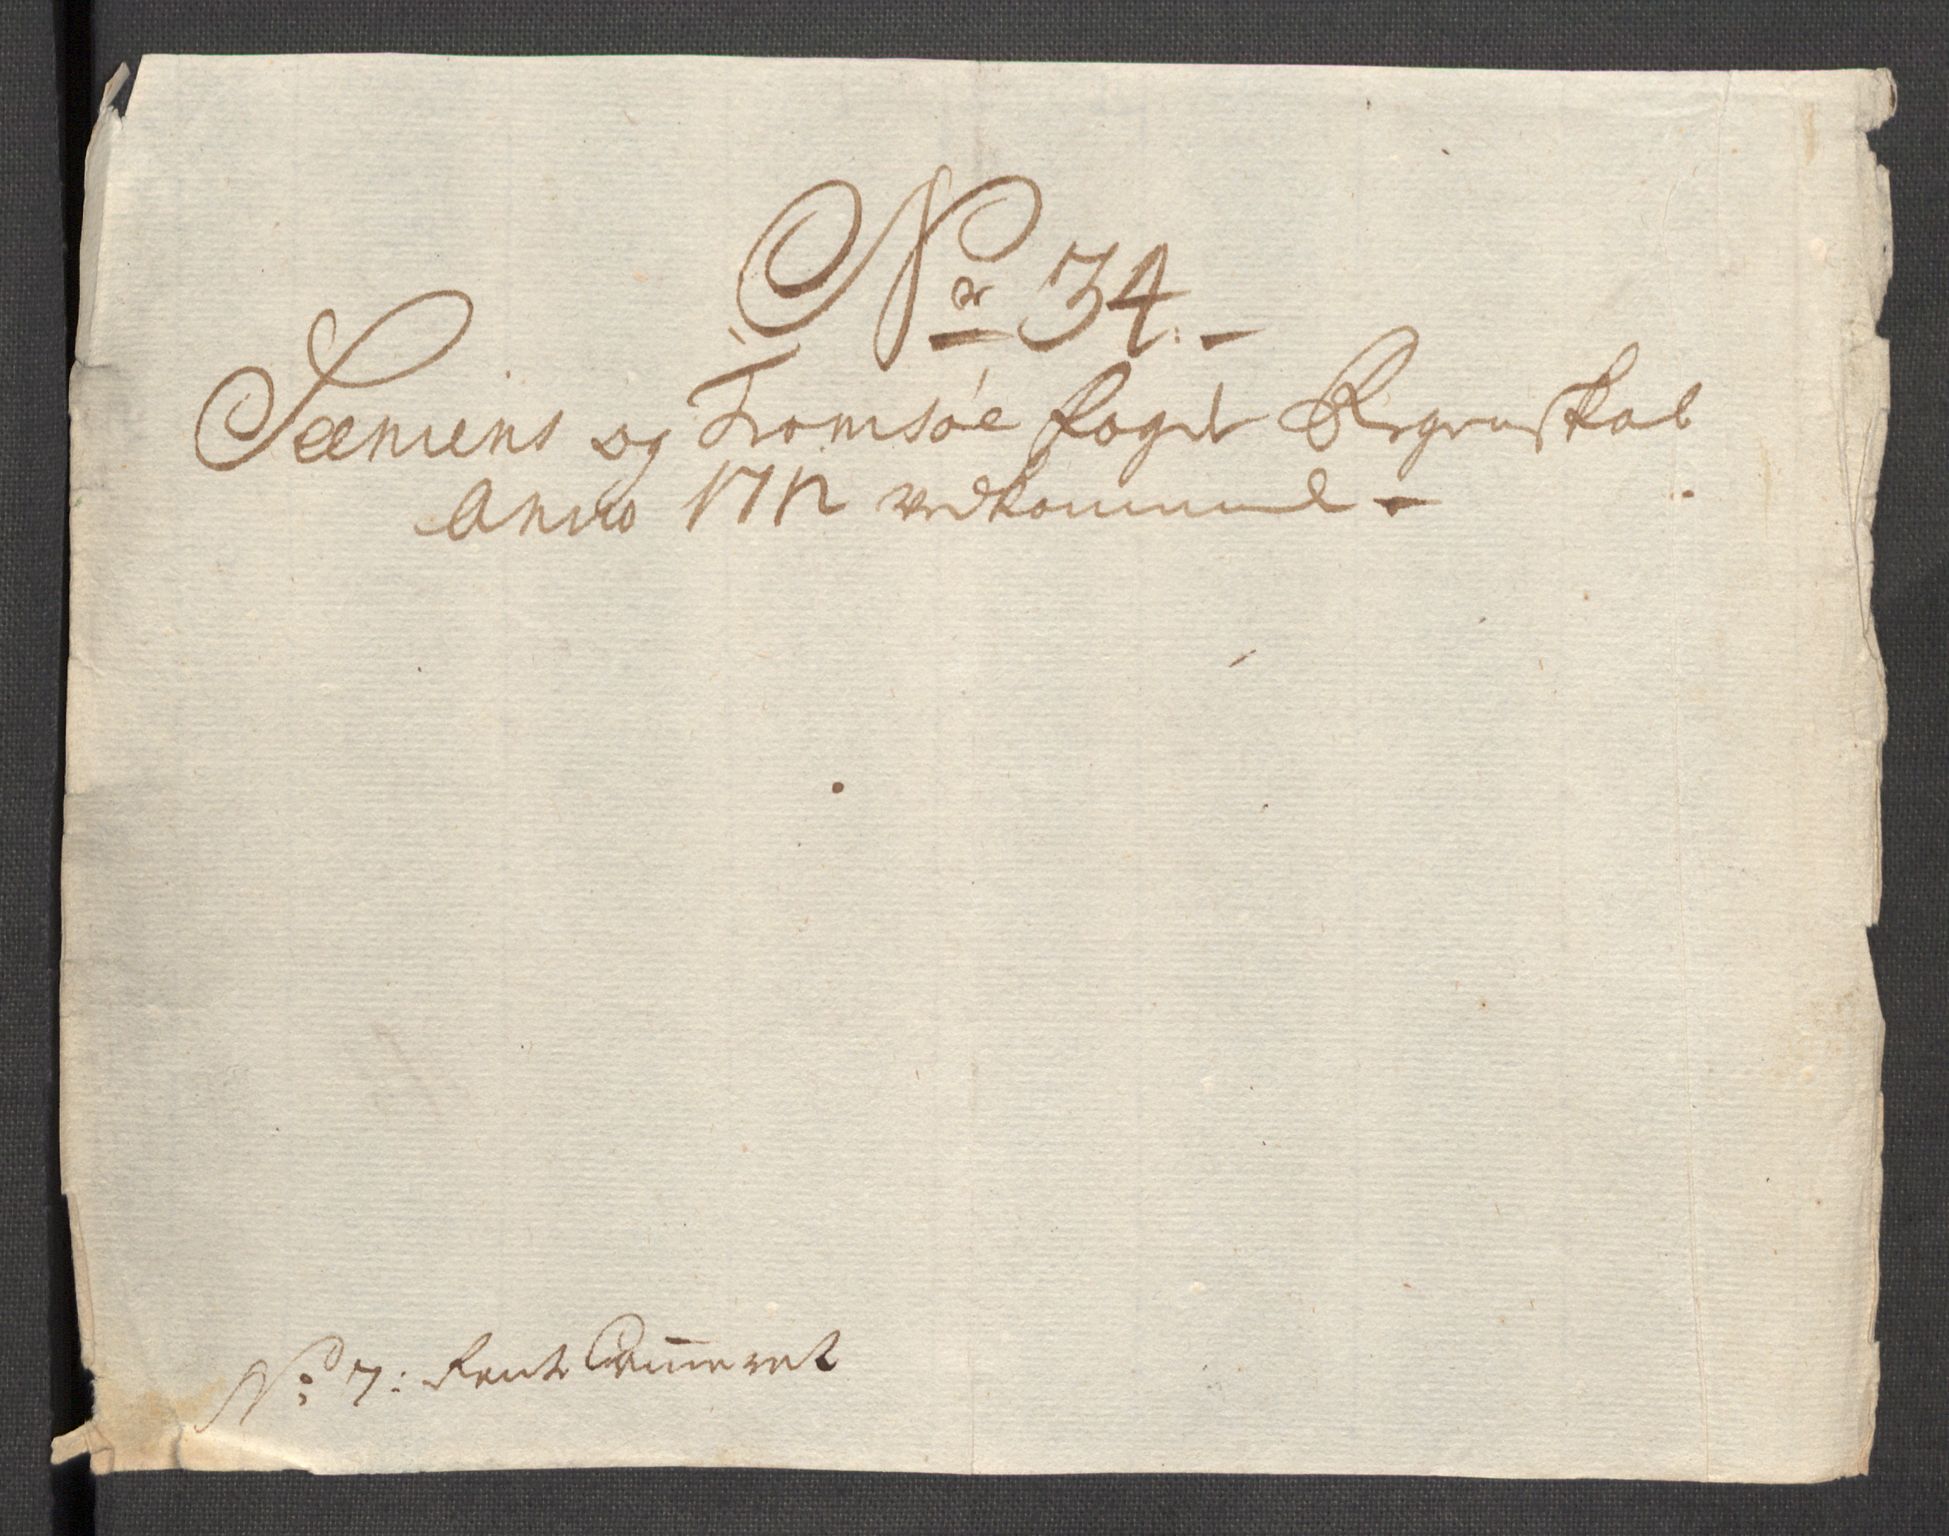 Nr 34.
Sæniens og Tromsøe fogd Regenskab
Anno 1712 vedkommend
No 7: Rente Cammeret